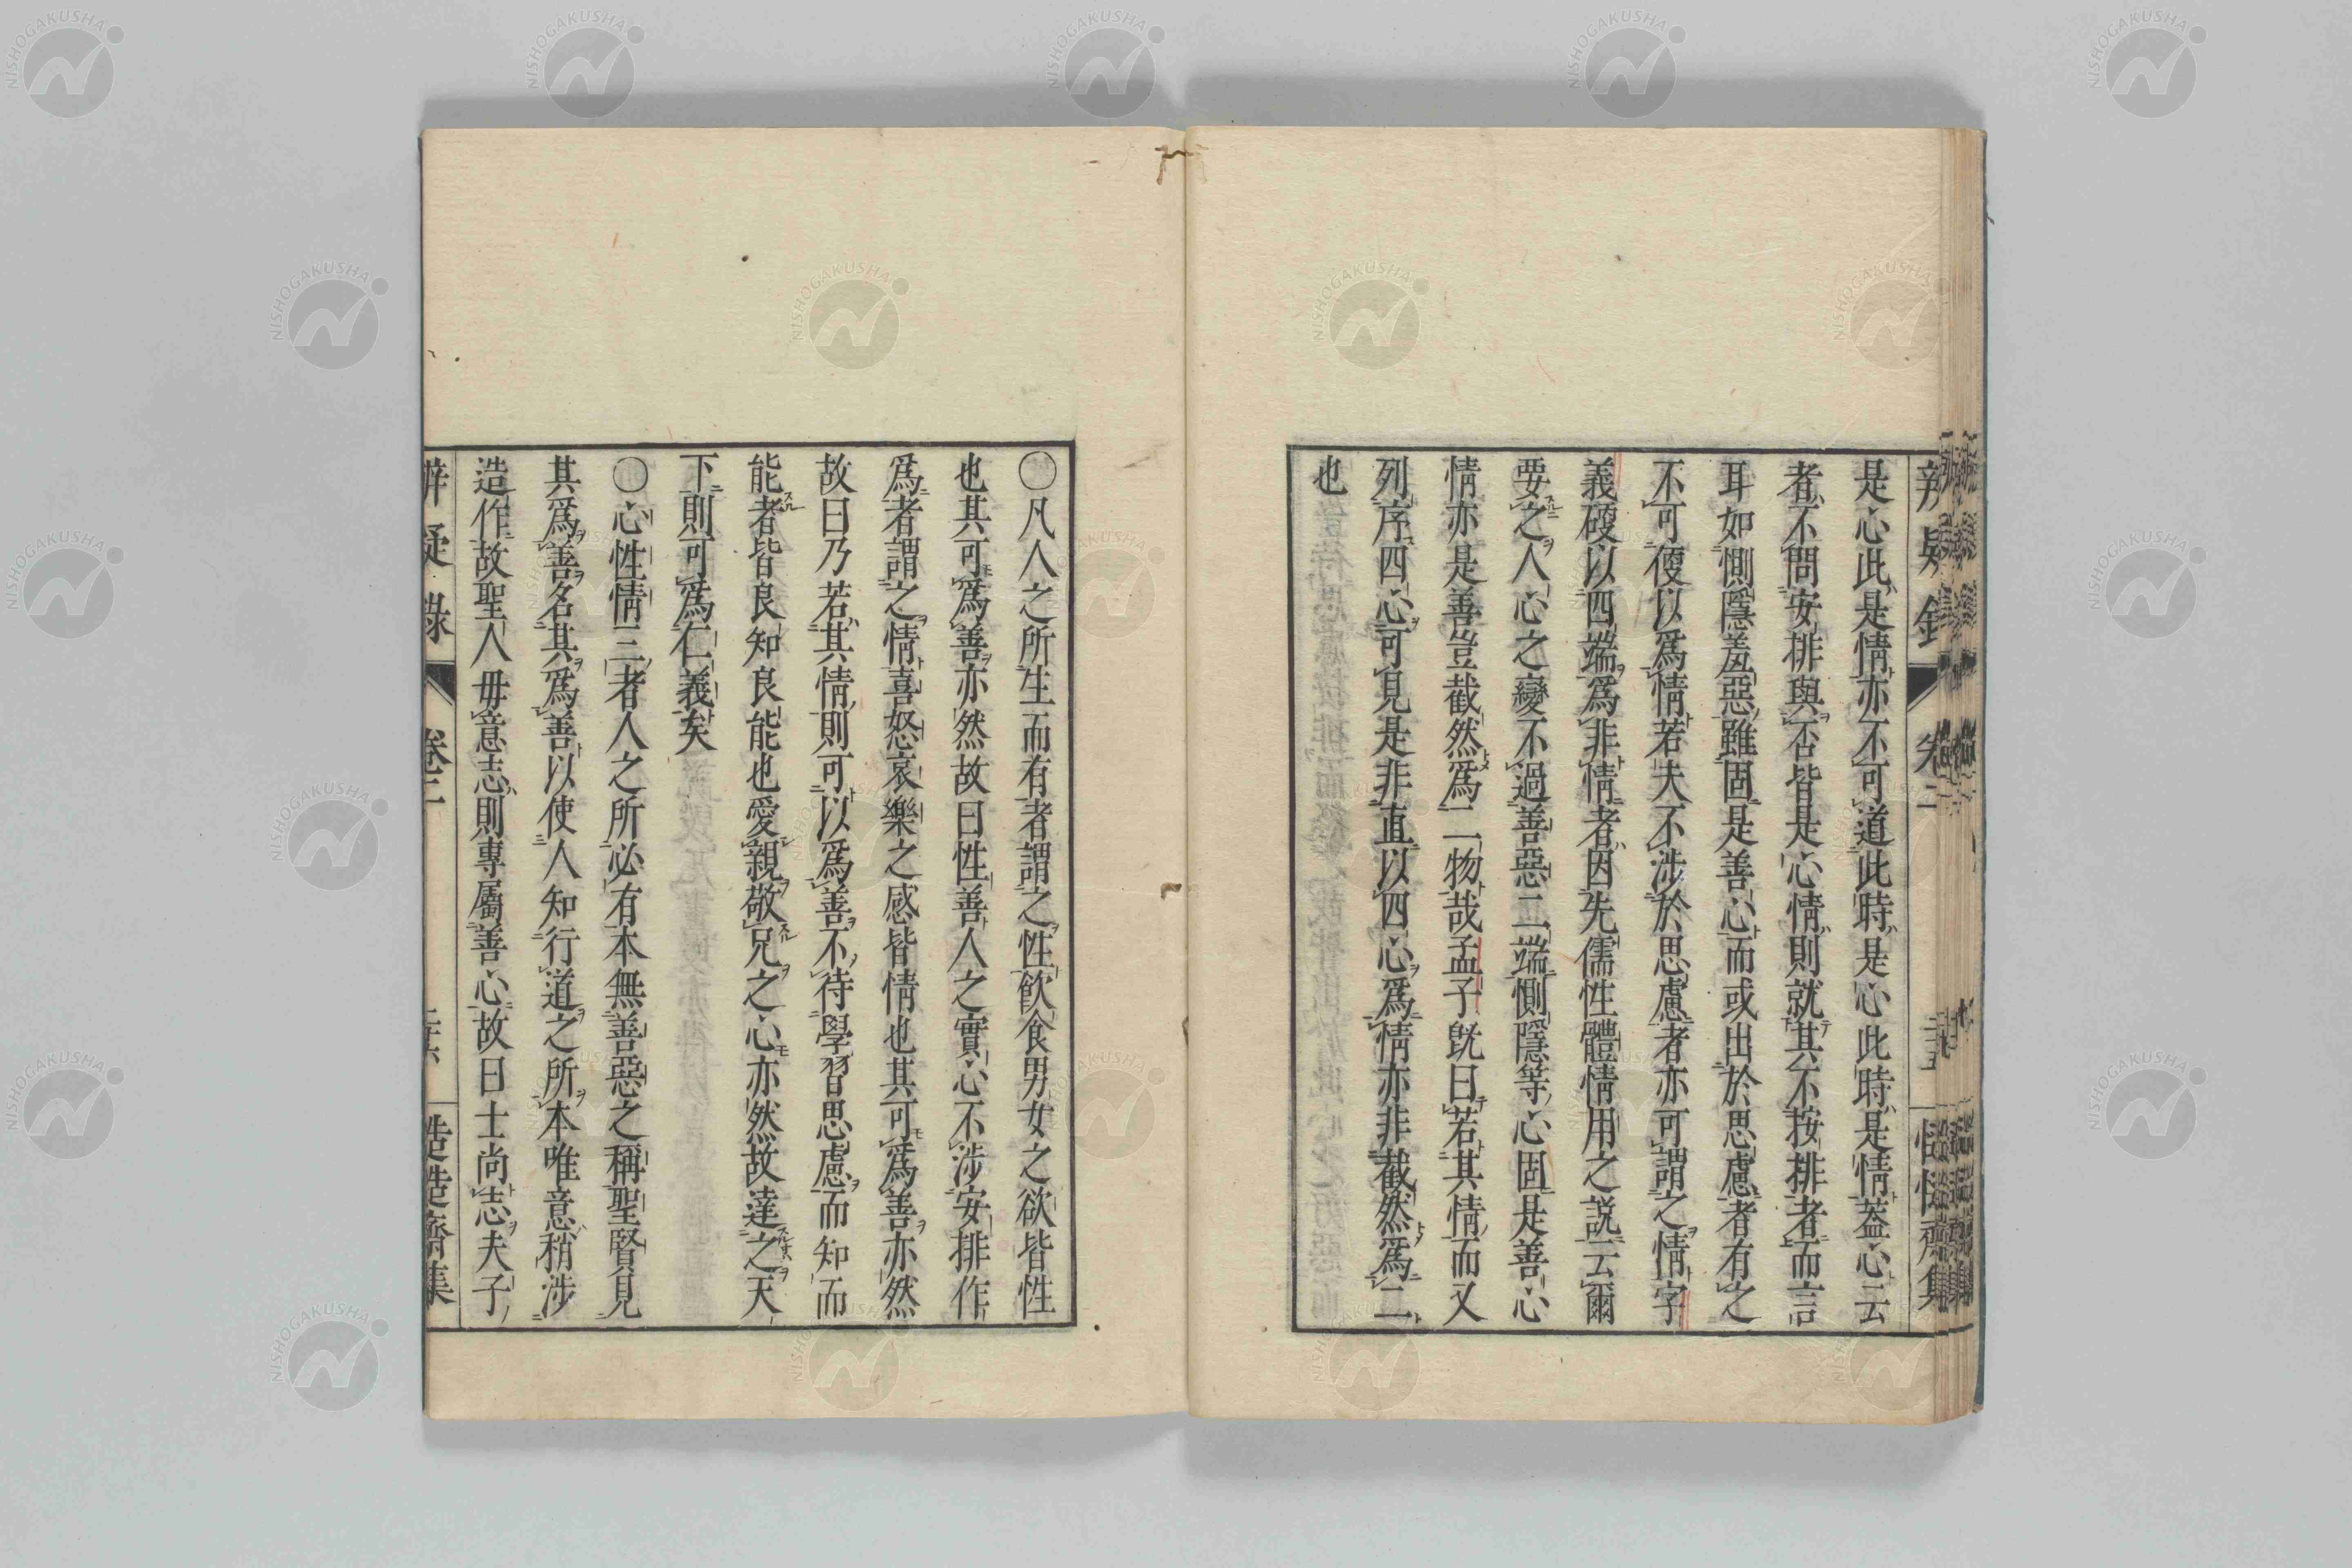 是心此是情亦不可道此時是心此時是情蓋心云
者不問安排與否皆是心情則就其不按排者而言
耳如惻隱羞惡雖固是善心而或出於思慮者有之
不可便以爲情若夫不涉於思慮者亦可謂之情字
義硬以四端爲非情者因先儒性體情用之説云爾
要之人心之變不過善惡二端惻隱等心固是善心
情亦是善豈截然爲二物哉孟子既曰若其情而又
列序四心可見是非直以四心爲情亦非截然爲二
也
〇凡人之所生而有者謂之性飮食男女之欲皆性
也其可爲善亦然故曰性善人之實心不涉安排作
爲者謂之情喜怒哀樂之感皆情也其可爲善亦然
故曰乃若其情則可以爲善不待學習思慮而知而
能者皆良知良能也愛親敬兄之心亦然故達之天
下則可爲仁義矣
〇心性情三者人之所必有本無善惡之稱聖賢見
其爲善名其爲善以使人知行道之所本唯意稍涉
造作故聖人毋意志則專屬善心故曰士尚志夫子
辨疑録 卷二
NISHOGAKUSHA